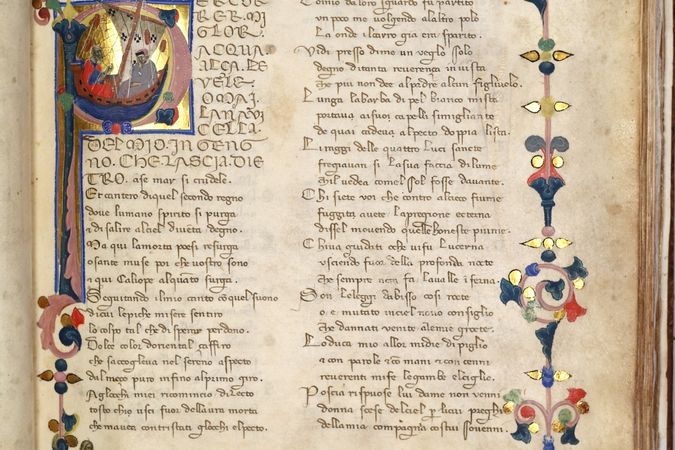 PER COR
RER.MI
GLOR
ACQUA
ALCA.LE
VELE
OMAI.
LANAVI
CELLA.
DEL MIO.INGENG
NO.CHELASCIADIE
TRO. ase mar si crudele.
Et cantero diquel secondo regno
doue lumano spirito si purga
⁊ di salire alciel diuenta degno.
Ma qui lamorta poesi resurga
o sante muse poi che uostro sono
⁊ qui Caliope alquanto surga.
Seguitando ilmio canto co quel suono
dicui lepiche misere sentiro
lo colpo tal che disperar perdono.
Dolce color doriental çaffiro
che saccoglieua nel sereno aspecto
dal meço puro infino alprimo giro.
Agliocchi miei ricomincio dilecto
tosto chio usci fuor dellaura morta
che mauea contristati gliocchi elpecto.
Como daloro sguardo fu partito
un poco me uolgendo alaltro polo
La onde ilcarro gia era sparito.
Vidi presso dime un ueglo solo
degno ditanta reuerença in uista
che piu non dee alpadre alcun figliuolo.
Lunga labarba ⁊ di pel bianco mista
portaua asuoi capelli simigliante
de quai cadeua alpecto doppia lista.
Li raggi delle quattro Luci sancte
fregiauan si Lasua faccia dilume
chil uedea comel sol fosse dauante.
Chi siete uoi che contro alcieco fiume
fuggita auete lapregione ecterna
dissel mouendo quelle honeste piume.
Chiua guidati o che uifu Lucerna
usciendo fuor della profonda nocte
che sempre nera fa laualle inferna.
Son leleggi dabisso cosi rocte
o. e mutato inciel nouo consiglio
che dannati uenite alemie grocte.
Lo duca mio allor midie di piglio
⁊ con parole ⁊ co mani ⁊ con cenni
reuerenti mife legambe elciglio.
Poscia rispuose lui dame non uenni
donna scese delciel per lucui preghi
della mia compagna costui souenni.